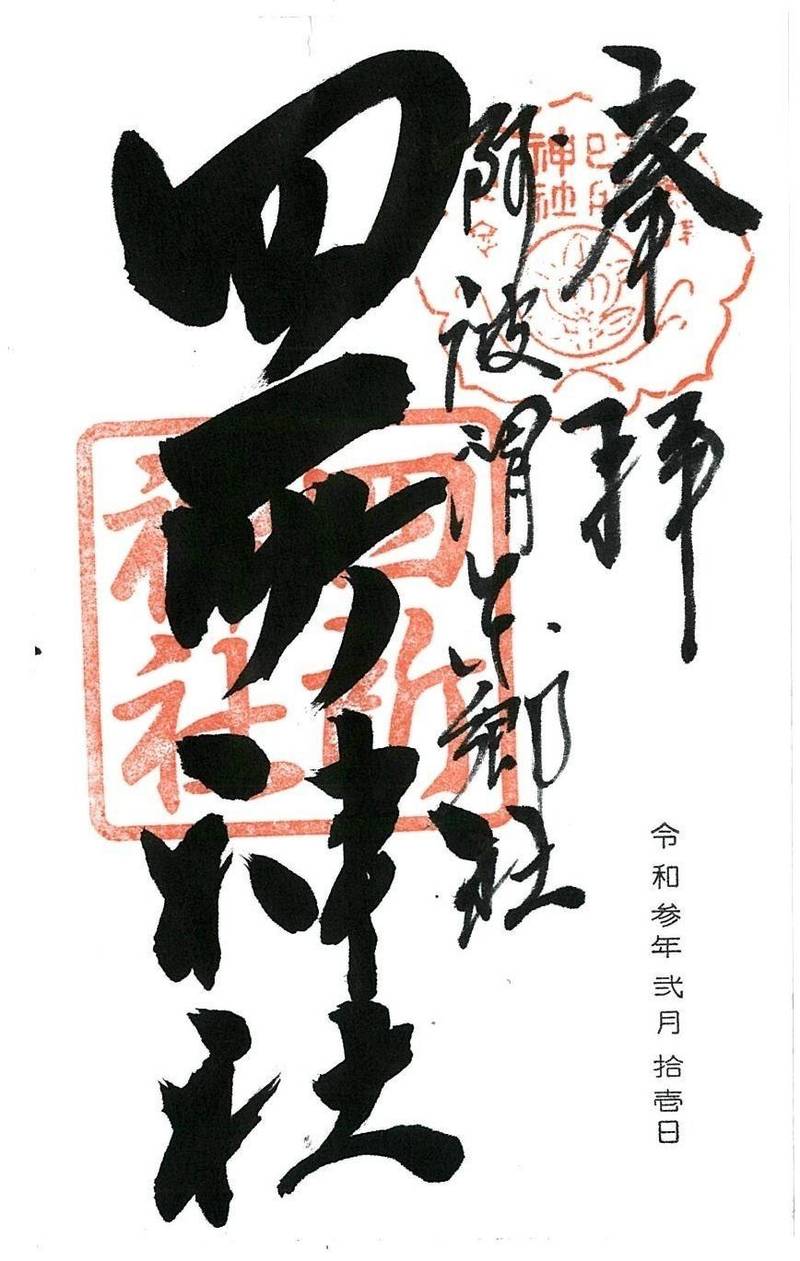 奉拝
阿波渭東郷社
四所神社
四所
神社
神社
令和参年弐月拾壱日